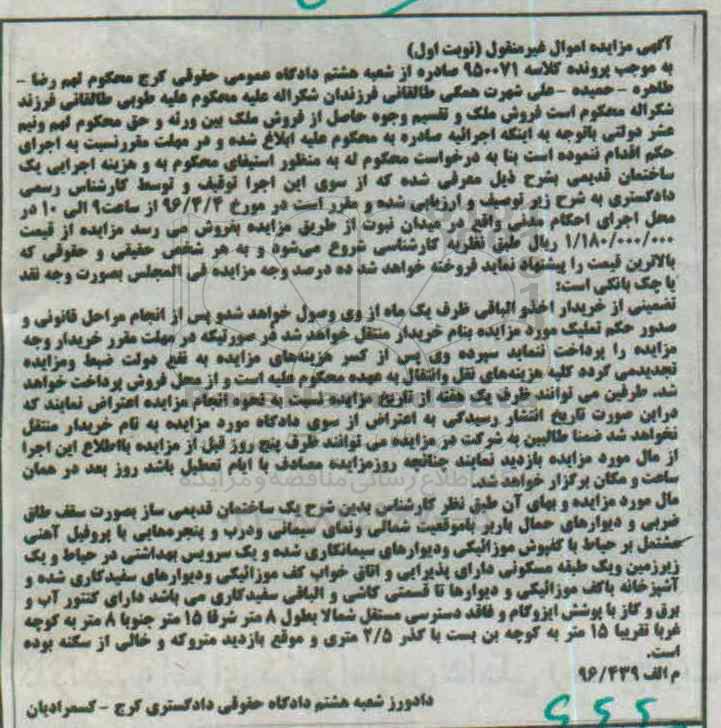 آگهی مزایده اموال غیرمنقول (نوبت اول)
به موجب پرونده کلاسه ۹۵۰۰۷۱ صادره از شعبه هشتم دادگاه عمومی حقوقی کرج محکوم لهم رضا -
طاهره - حمیده - علی شهرت همگی طالقانی فرزندان شکراله علیه محکوم علیه طوبی طالقانی فرزند
شکراله محکوم است فروش ملک و تقسیم وجوه حاصل از فروش ملک بین ورثه و حق محکوم لهم ونیم
عشر دولتی باتوجه به اینکه اجرائیه صادره به محکوم علیه ابلاغ شده و در مهلت مقررنسبت به اجرای
حکم اقدام ننموده است بنا به درخواست محکوم له به منظور استیفای محکوم به و هزینه اجرایی یک
ساختمان قدیمی بشرح ذیل معرفی شده که از سوی این اجرا توقیف و توسط کارشناس رسمی
دادگستری به شرح زیر توصیف و ارزیابی شده و مقرر است در مورخ ۹۶/۴/۴ از ساعت۹ الی ۱۰ در
محل اجرای احکام مدنی واقع در میدان نبوت از طریق مزایده بفروش می رسد مزایده از قیمت
۱/۱۸۰/۰۰۰/۰۰۰ ریال طبق نظریه کارشناسی شروع می‌شود و به هر شخص حقیقی و حقوقی که
بالاترین قیمت را پیشنهاد نماید فروخته خواهد شد ده درصد وجه مزایده فی المجلس بصورت وجه نقد
یا چک بانکی است:
تضمینی از خریدار اخذو الباقی ظرف یک ماه از وی وصول خواهد شدو پس از انجام مراحل قانونی و
صدور حکم تملیک مورد مزایده بنام خریدار منتقل خواهد شد در صورتیکه در مهلت مقرر خریدار وجه
مزایده را پرداخت ننماید سپرده وی پس از کسر هزینه‌های مزایده به نفع دولت ضبط ومزایده
تجدیدمی گردد کلیه هزینه‌های نقل وانتقال به عهده محکوم علیه است و از محل فروش پرداخت خواهد
شد. طرفین می توانند ظرف یک هفته از تاریخ مزایده نسبت به نحوه انجام مزایده اعتراض نمایند که
دراین صورت تاریخ انتشار رسیدگی به اعتراض از سوی دادگاه مورد مزایده به نام خریدار منتقل
نخواهد شد ضمنا طالبین به شرکت در مزایده می توانند ظرف پنج روز قبل از مزایده بااطلاع این اجرا
از مال مورد مزایده بازدید نمایند چنانچه روزمزایده مصادف با ایام تعطیل باشد روز بعد در همان
ساعت و مکان برگزار خواهد شد.
مال مورد مزایده و بهای آن طبق نظر کارشناس بدین شرح یک ساختمان قدیمی ساز بصورت سقف طاق
ضربی و دیوارهای حمال باربر باموقعیت شمالی ونمای سیمانی ودرب و پنجره‌هایی با پروفیل آهنی
مشتمل بر حیاط با کفپوش موزائیکی ودیوارهای سیمانکاری شده و یک سرویس بهداشتی در حیاط و یک
زیرزمین ویک طبقه مسکونی دارای پذیرایی و اتاق خواب کف موزائیکی ودیوارهای سفیدکاری شده و
آشپزخانه باکف موزائیکی و دیوارها تا قسمتی کاشی و الباقی سفیدکاری می باشد دارای کنتور آب و
برق و گاز با پوشش ایزوگام و فاقد دسترسی مستقل شمالا بطول ۸ متر شرقا ۱۵ متر جنوبا ۸ متر به کوچه
غربا تقریبا ۱۵ متر به کوچه بن بست با گذر ۲/۵ متری و موقع بازدید متروکه و خالی از سکنه بوده
است.
م الف ۹۶/۴۳۹
دادورز شعبه هشتم دادگاه حقوقی دادگستری کرج -